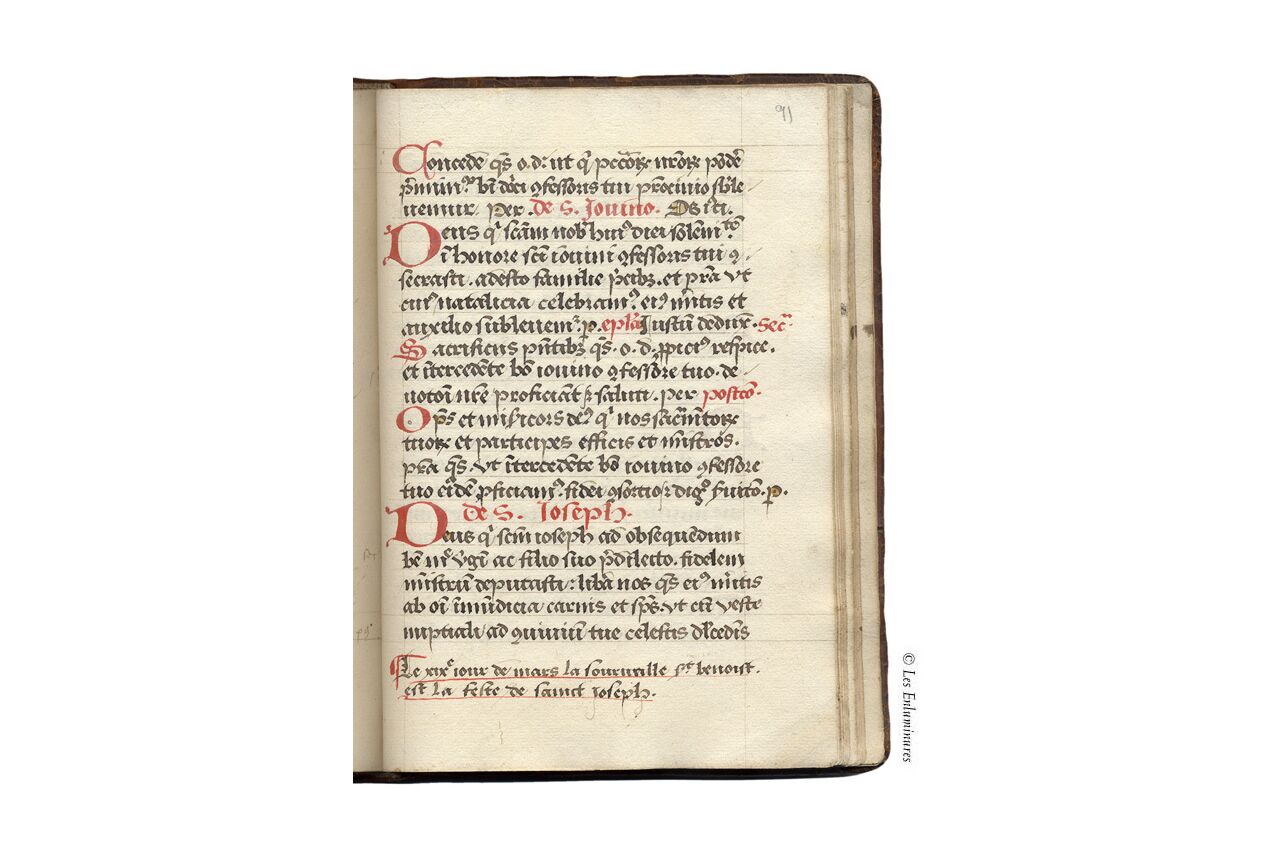 91
Concede q̄s o. d. ut q̄ pccōꝝ nrōꝝ pōdē
p̄mim᷒ bti dōci ꝯfessoris tui p̄rocinio s̄ble
uemur. Per. de S. Iouino. Os iti.
Deus q̄ scām nob̄ hui᷒ diei sōlenītē
ī honore scī iouini ꝯfessoris tui ꝯ
secrasti. adesto familie p̄cibꝫ. et p̄ra vt
cui᷒ natalicia celebram᷒. ei᷒ m̄itis et
auxilio subleuem᷒. p. ep̄la Iustū dedux̄. Sec̄.
Sacrificiis p̄ntibꝫ q̄s. o. d. ꝓpici᷒ respice.
et ītercedēte bō iouino ꝯfessōre tuo. de
uotōī nr̄e proficiāt ꝛ saluti. per postcō.
Op̄s et misīcors de᷒ q̄ nos sacm̄toꝝ
tuoꝝ et participes efficis et mīstros.
p̄ra q̄s. vt ītercedēte bō iouino ꝯfessore
tuo eīdē ꝓficiam᷒. fidei ꝯsortio ꝛ dig᷒ s̄uitō. p.
de S. Ioseph.
Deus q̄ scm̄ ioseph ad obsequēdum
bē mr̄ v̄gī ac filio suo p̄dilecto. fidelem
mīstrū deputasti: libā nos q̄s ei᷒ m̄itis
ab oī īmūdicia carnis et sp̄s. vt cū veste
nuptiali ad ꝯuiuiū tue celestis dl̄cedīs
Le xixe iour de mars la sourueille st benoist.
est la feste de sainct Ioseph.
© Les Enluminures